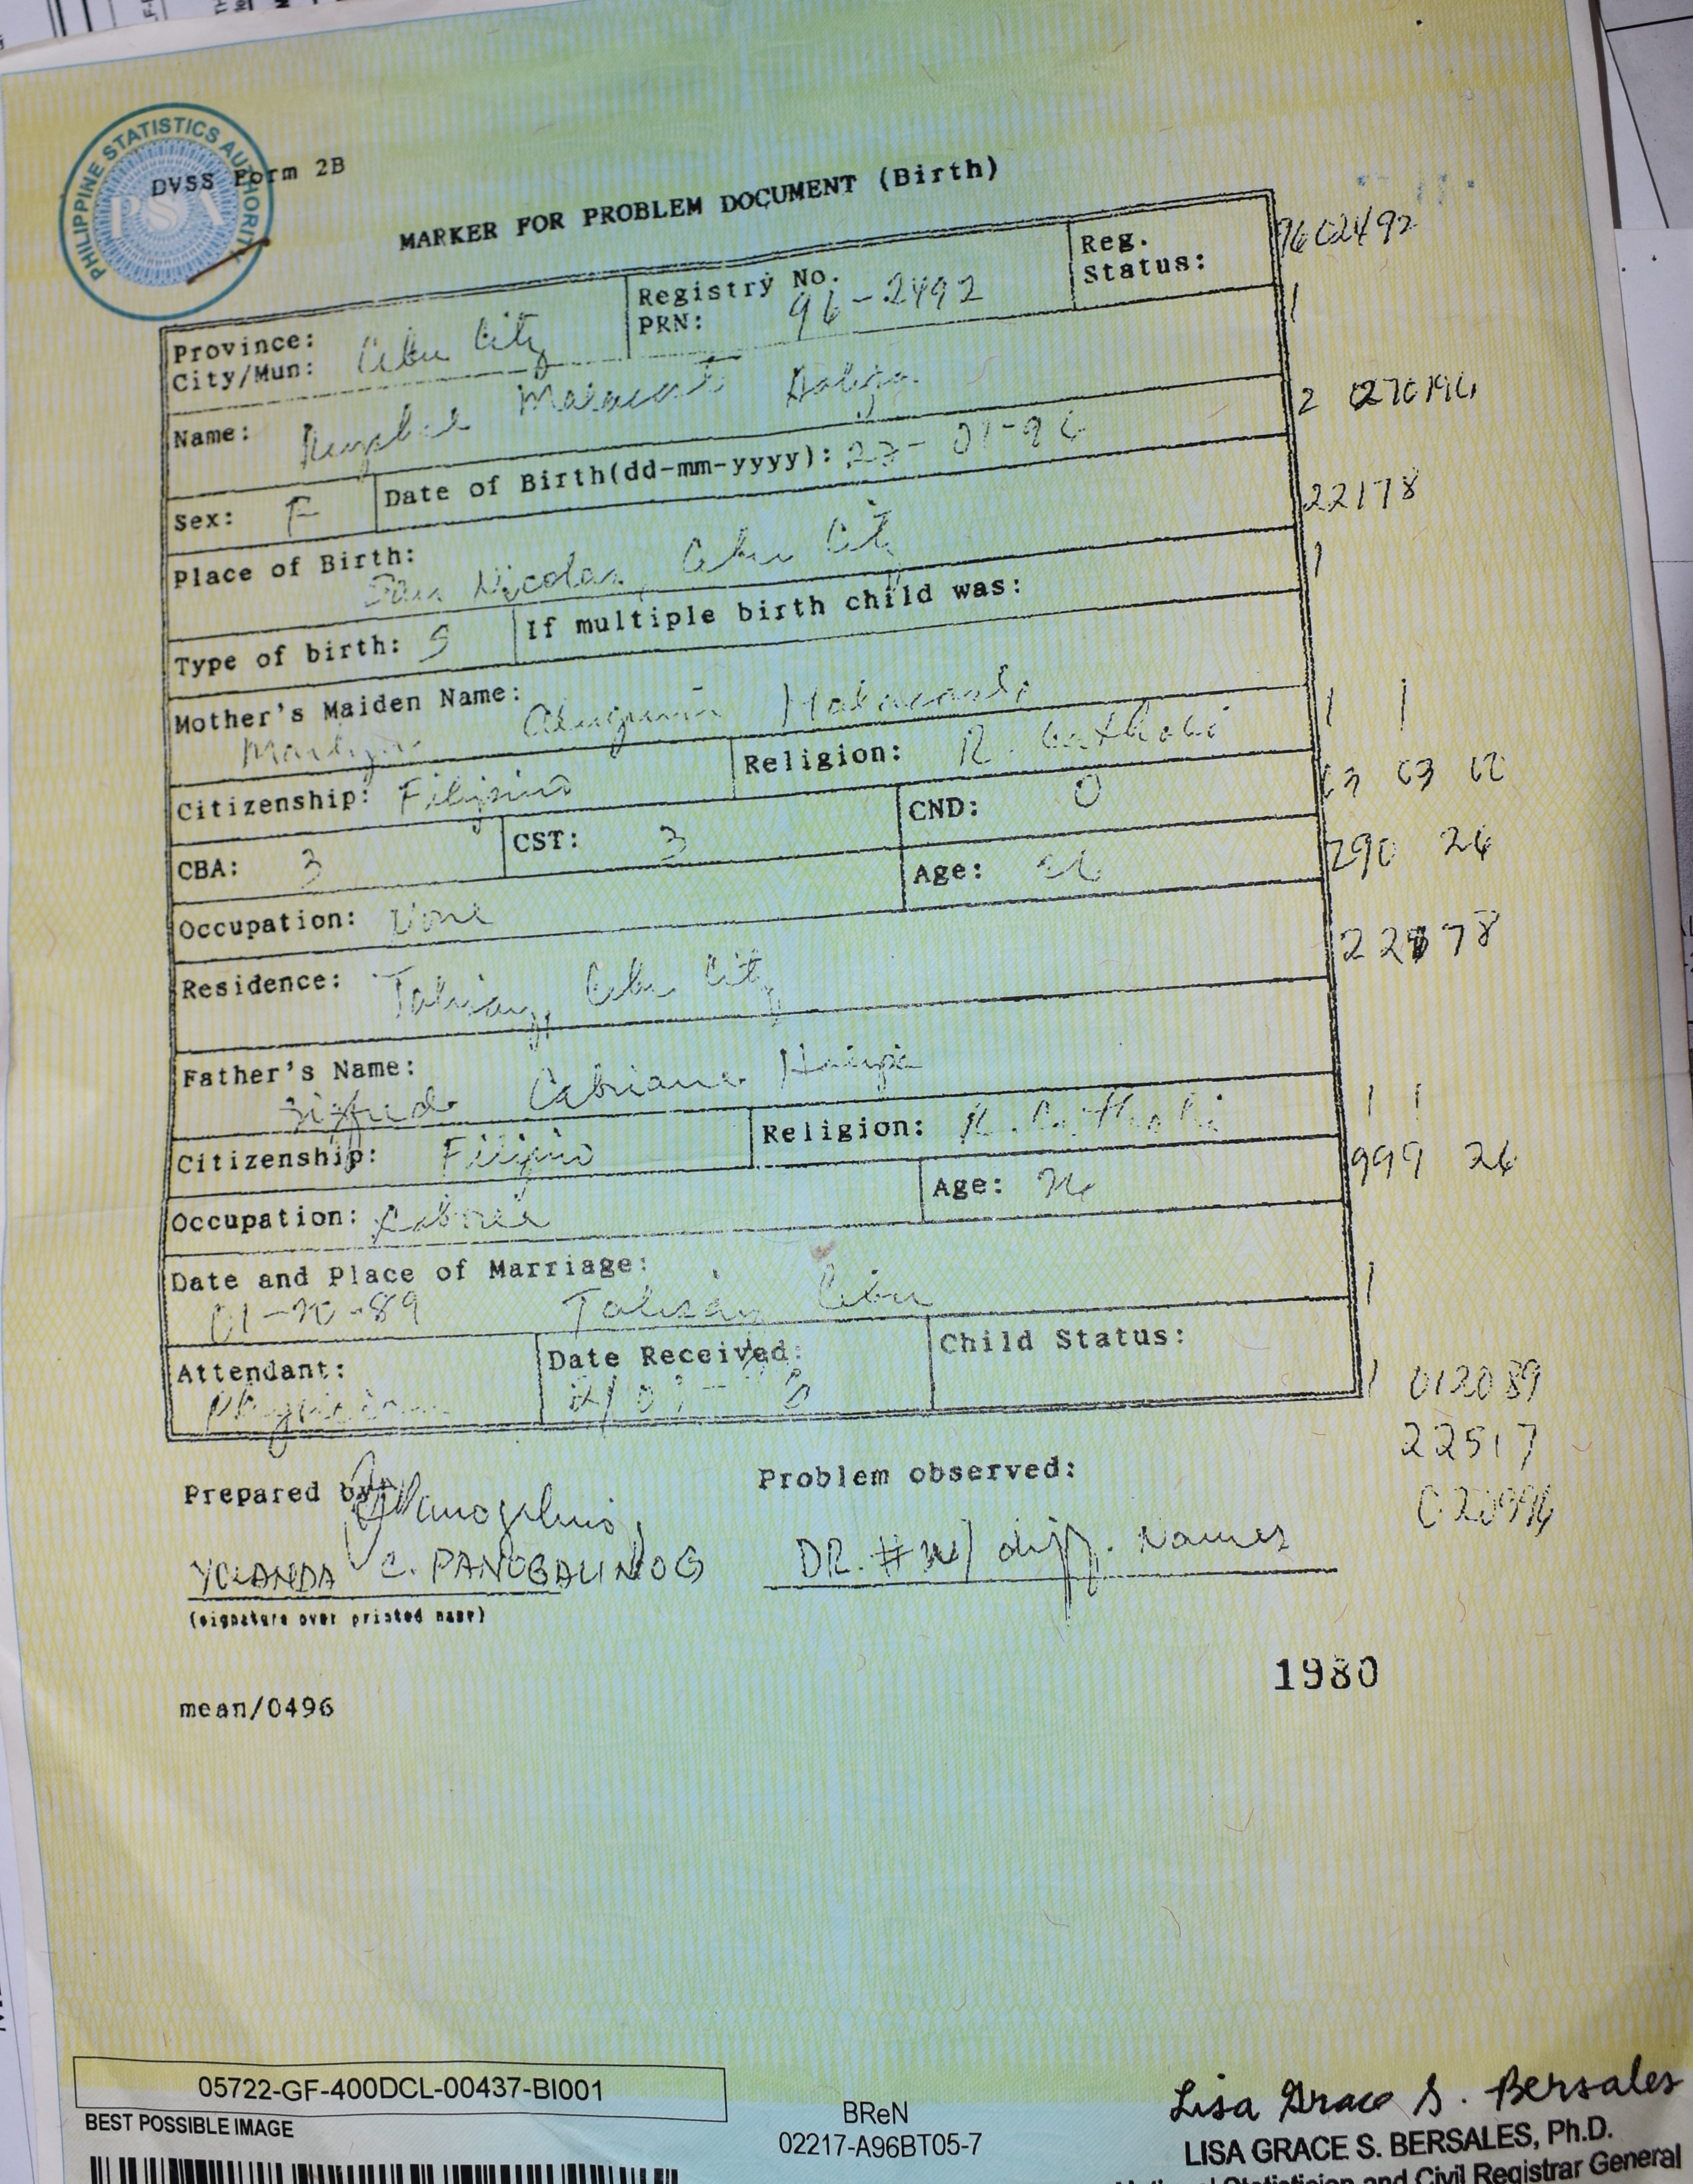 PHILIPPINE STATISTICS AUTHORITY
PSA
DVSS Form 2B
MARKER FOR PROBLEM DOCUMENT (Birth)
Province:
City/Mun: Cebu City
Registry No.
PRN: 96-2492
Reg.
Status:
9602492
1
Name:
Sex: F
Date of Birth(dd-mm-yyyy): 27-01-96
2 270196
Place of Birth:
San Nicolas, Cebu City
22178
Type of birth: S
If multiple birth child was:
1
Mother's Maiden Name:
Citizenship: Filipino
Religion: R. Catholic
1 1
CBA: 3
CST: 3
CND: 0
03 03
Occupation: None
Age: 26
290 26
Residence: Talisay, Cebu City
22178
Father's Name:
Citizenship: Filipino
Religion: R. Catholic
1 1
Occupation:
Age: 26
999 26
Date and Place of Marriage:
01-20-89 Talisay Cebu
1
Attendant:
Physician
Date Received:
Child Status:
1 012089
22517
Prepared by:
YOLANDA C. PANOGALINOG
(signature over printed name)
Problem observed:
DR. # w/ diff. Names
1980
mean/0496
05722-GF-400DCL-00437-BI001
BEST POSSIBLE IMAGE
BReN
02217-A96BT05-7
Lisa Grace S. Bersales
LISA GRACE S. BERSALES, Ph.D.
National Statistician and Civil Registrar General